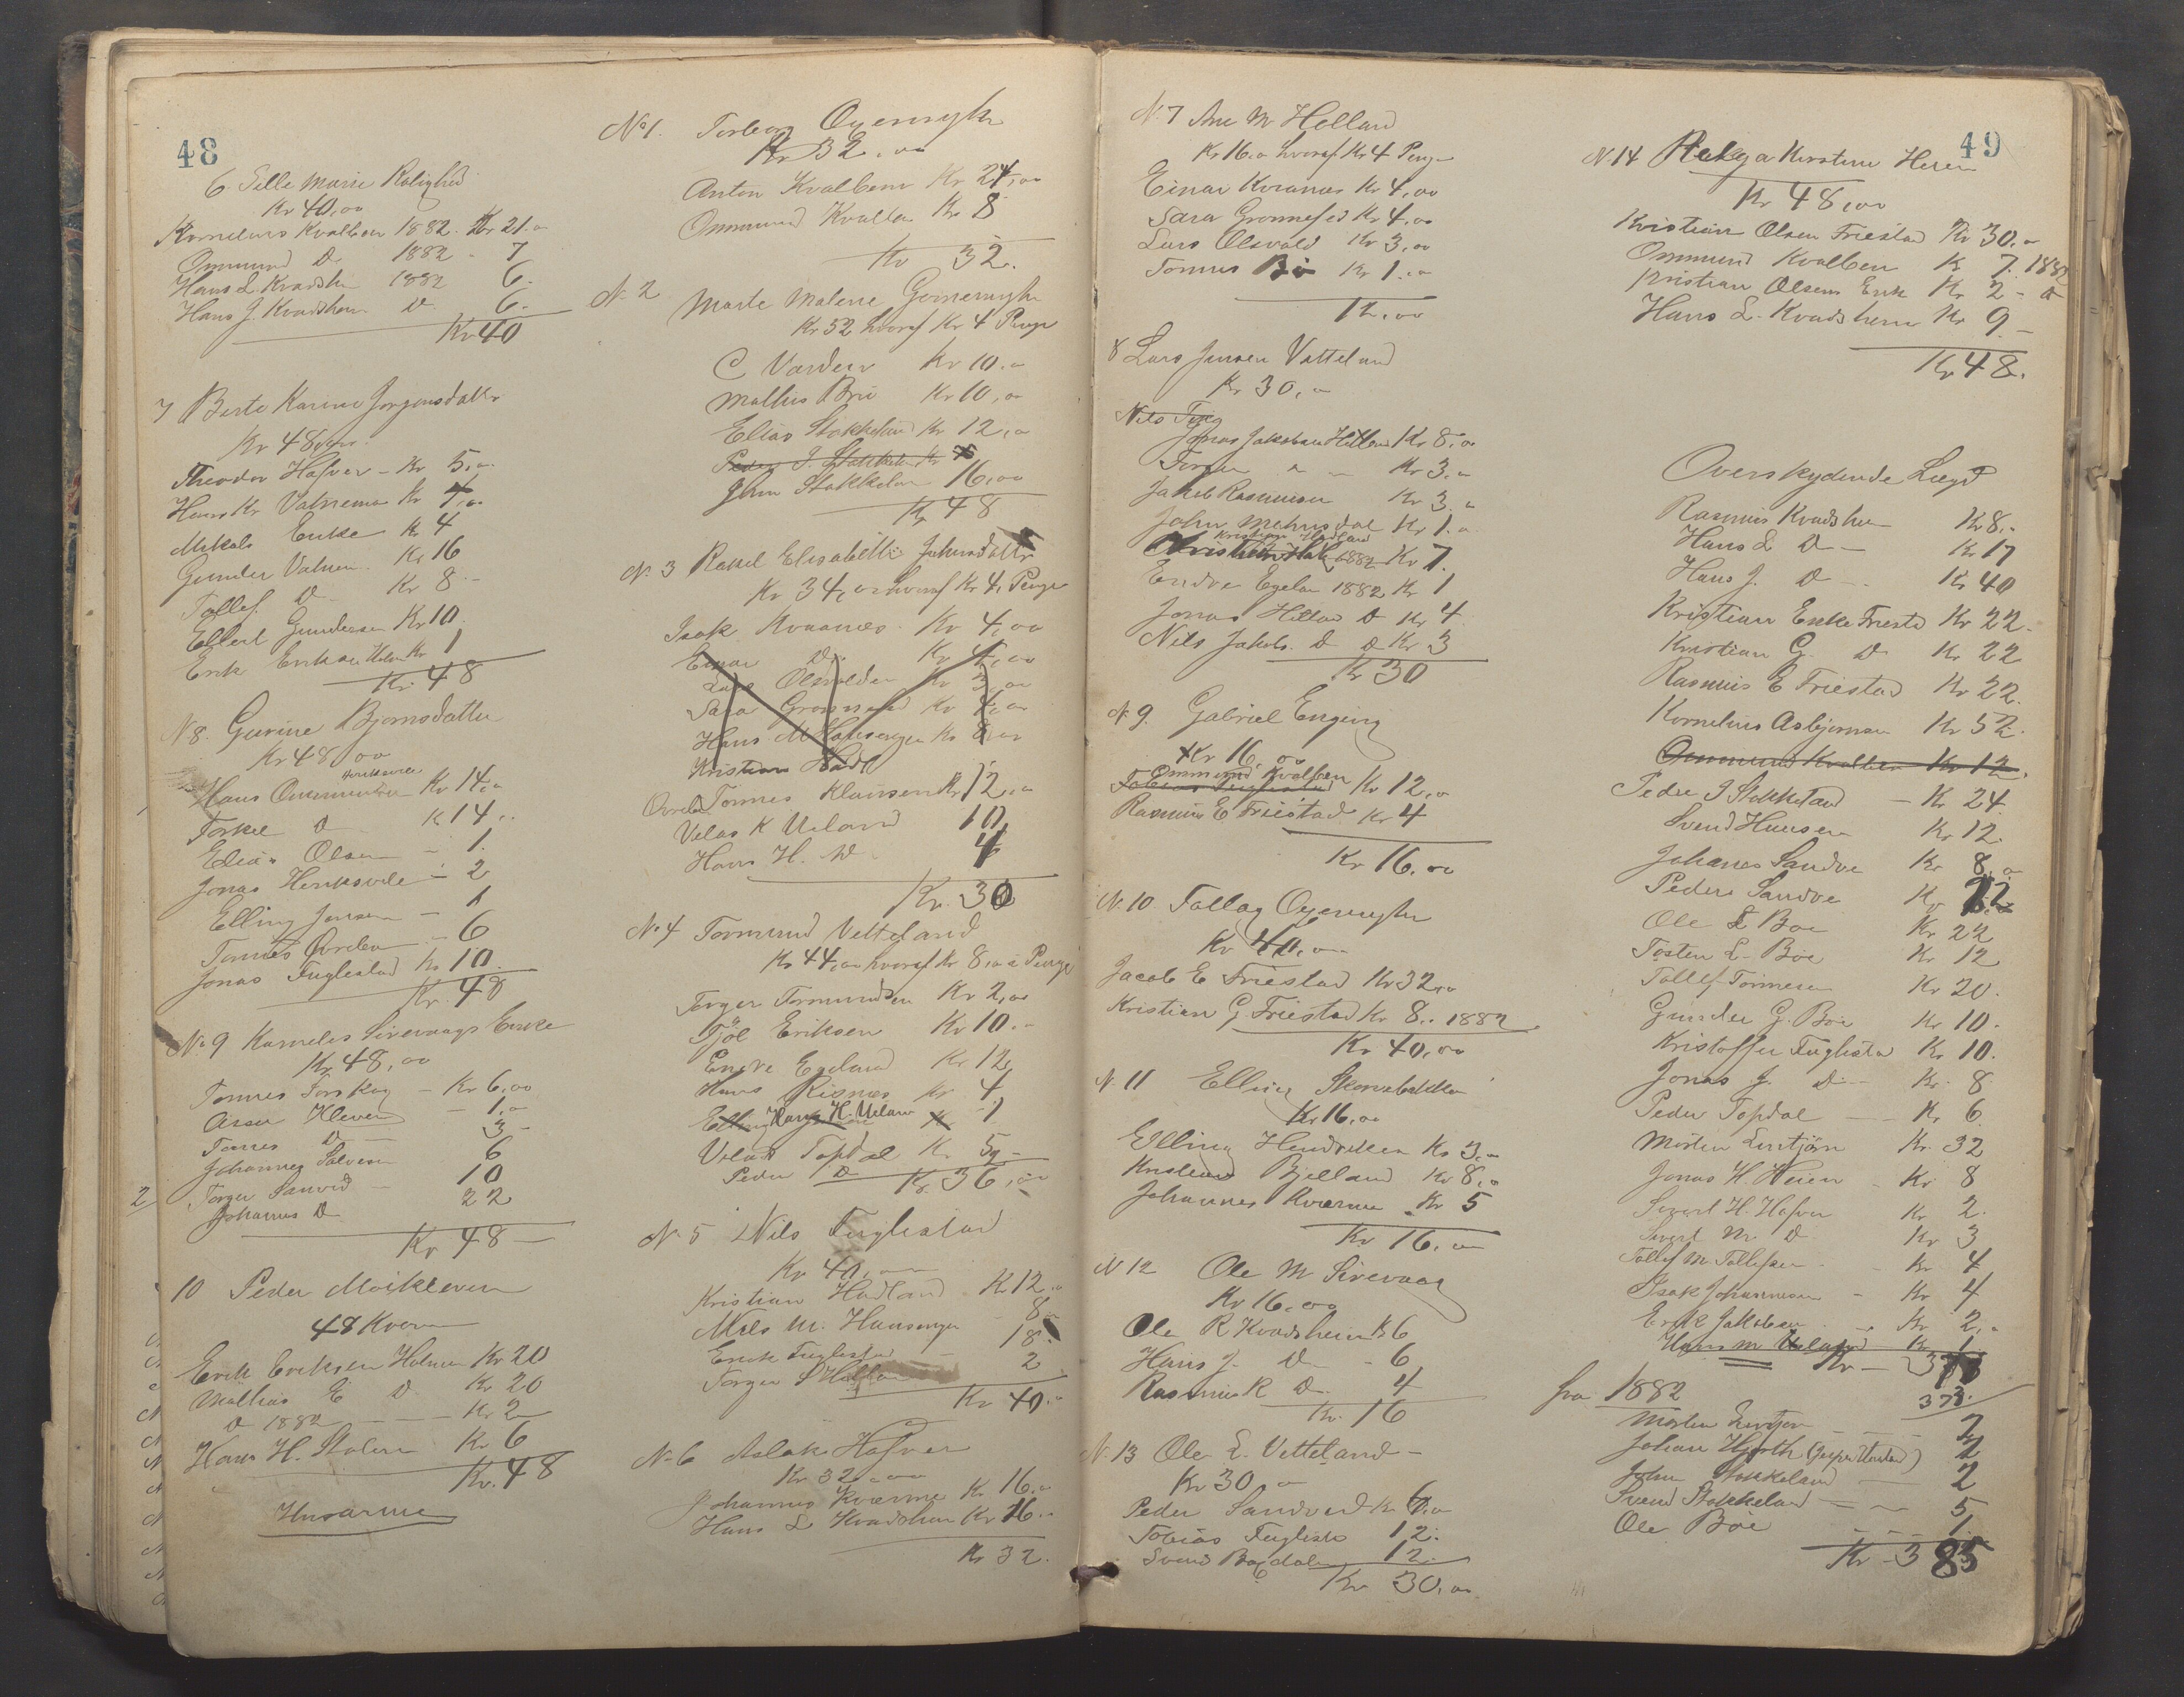 48
6. Sille Marie Rolighed
Kr 40,00
Kornelius Kvalben 1882. Kr 21.
Ommund D. 1882 " 7
Hans L. Kvadshei 1882 6.
Hans J. Kvadsheim D. 6.
Kr 40
7 Berte Karine Jørgensdatter
Kr 48
Theodor Hafver - Kr 5,
Hans Kr Vatnemo Kr 4,00
Mikals Eriken Kr 4
Gunder Vatnem. Kr 16
Tollef D - Kr 8.-
Ellert Gundersen Kr 10.
Erik Eriksen Holm Kr 1
Kr 48
N 8. Gurine Bjørnsdatter
Kr 48 00
Hans Ommundsen Kr 14,
Torkel D K 14
Elias Olsen - 1.
Jonas Henksvele - 2
Elling Jansen - 1
Tønnes - 6
Jonas Fuglestad Kr 10.
Kr. 48
No. 9 Karneles Sirevaags Enke
Kr. 48,00
Tønnes Torskog - Kr 6,00
Asser Kleven - 1.
Tønnes D - 3 -
Johannes Salvesen 6
Torger Sanved - 10
Johannes D 22
Kr 48 -
2
10 Peder Moikleven
48 Kroner
Erik Eriksen Holmen Kr 20
Mathias E D. Kr 20
D 1882 - - - Kr 2
Hans H. Stolen Kr 6
Kr. 48
Husarme
No 1. Torborg Ogemyhr
Kr 32,00
Anton Kvalbein Kr 24,00
Ommund Kvalbe Kr 8
Kr 32.
N. 2 Marte Malene
Kr 52 hvoraf Kr 4 Penge
C Varden Kr 10.
Mathis Brü Kr 10,00
Elias Stokkeland Kr 12,
Peder J. Stokkeln Kr 8
John Stokkelan 16,00
Kr 48
N. 3 Rakel Elisabeth Johnsdatter
Kr 34, hvoraf Kr 4, Penge
Isak Kvanes. Kr 4,00
Einar D. Kr 4,00
Lars Olsvolden Kr 3,00
Sara Kr 4,00
Hans M. Hansenger Kr 8,00
Kristian Hadl
Tønnes Klausen Kr 12,
Velas K Ueland 10
Hans H. D 4
Kr. 30
No. 4 Tormund Vetteland
Kr 44,00 hvoraf Kr 8,00 i Penge
Torger Tormundsen Kr 2,00
Tjöl Eriksen Kr 10.-
Endre Egeland Kr 12
Hans Risnes Kr 4
Hans H. Ueland - 1
Velas Topdal Kr 5
Peder D Kr. 36,00
N. 5 Nils Fuglestad
Kr 40,
Kristian Hadland K 12
Nils M. Hansenger 8
Erik Fuglesta - 18
Torger S Hetlan 2
Kr 40.
N. 6 Aslak Hafver
Kr 32,00
Johannes Kværme K. 16.
Hans L Kvadsheim Kr 16.
Kr 32.
N. 7 Ane M Helland
Kr 16. hvoraf Kr 4 Penge
Einar Kvanes Kr 4,00
Sara Kr 4,00
Lars Olsvold Kr 3,00
Tønnes Bø Kr 1.
12,00
8 Lars Jensen Vatteland
Kr 30,
Nils
Jonas Jakobsen Hetland Kr 8,
Torger " - Kr 3.
Jakob Rasmusen Kr 3.
John Mehusdal Kr 1.
Kristian Hadland
1882 Kr 7.
Endre Egelan 1882 Kr 1
Jonas Hetlan D Kr 4.
Nils Jakobs. D D Kr 3
Kr 30
N. 9. Gabriel Enging
Kr 16,00
Ommund Kvalben Kr 12,
Tobias Fuglestad
Rasmus E Friestad Kr 4
Kr 16,00
N. 10 Tallag Ogemyhr
Kr 40,
Jacob E Friestad Kr 32,
Kristian G Friestad Kr 8.. 1882
Kr 40,00
N. 11 Elling
Kr 16,00
Elling Hendriksen Kr 3,
Kristian Bjelland Kr 8,
Johannes Kværme Kr 5
Kr 16,
N 12 Ole M Sirevaag
Kr 16,00
Ole R Kvadsheim Kr 6
Hans J. D - 6
Rasmus R D. 4
Kr. 16
N. 13 Ole L. Vetteland -
Kr 30,
Peder Sandved Kr 6
Tobias Fuglesta 12.
Svend Bogdalen 12.
Kr 30,00
49
N 14 Helga Kirstine Heien
Kr 48,00
Kristian Olsen Friestad Kr 30.
Ommund Kvalben K 7. 1882
Kristian Olsens Enke Kr 2 - D
Hans L. Kvadsheim Kr 9 -
Kr 48.
Overskydende Lægd
Rasmus Kvadshei Kr 8,
Hans L D - Kr 17
Hans J. D - Kr 40
Kristian Enke Friesta Kr 22.
Kristian G. D Kr 22
Rasmus E Friestad Kr 22.
Kornelius Asbjørnsen Kr 52.
Ommund Kvalben Kr 12.
Peder J Stokkeland - Kr 24
Svend Hansen Kr 12.
Johanes Sandve Kr 8.
Peder Sandve Kr 12
Ole L Bøe Kr 22
Tosten L. Bøe Kr 12
Tollef Tønnesen Kr 20.
Gunder G. Bøe Kr 10.
Kristoffer Fuglesta Kr 10.
Jonas J. D - Kr. 8
Peder Topdal - - Kr. 6
Morten Lintjørn Kr. 32
Jonas H. Heien - Kr 8
Sivert H. Hafver Kr 2.
Sivert M. D Kr 3
Tollef M. Tollefsen - Kr 4
Isak Johannesen - Kr 4
Erik Jakobsen - Kr 2,
Hans M Ueland Kr 1
Kr - 373
fra 1882 373.
Morten Lintjørn - - - 2
Johan Hjorth (Jesper Ueland) 2
John Stokkeland - 2
Svend Stokkeland - 5
Ole Bøe - - - 1
Kr - 385